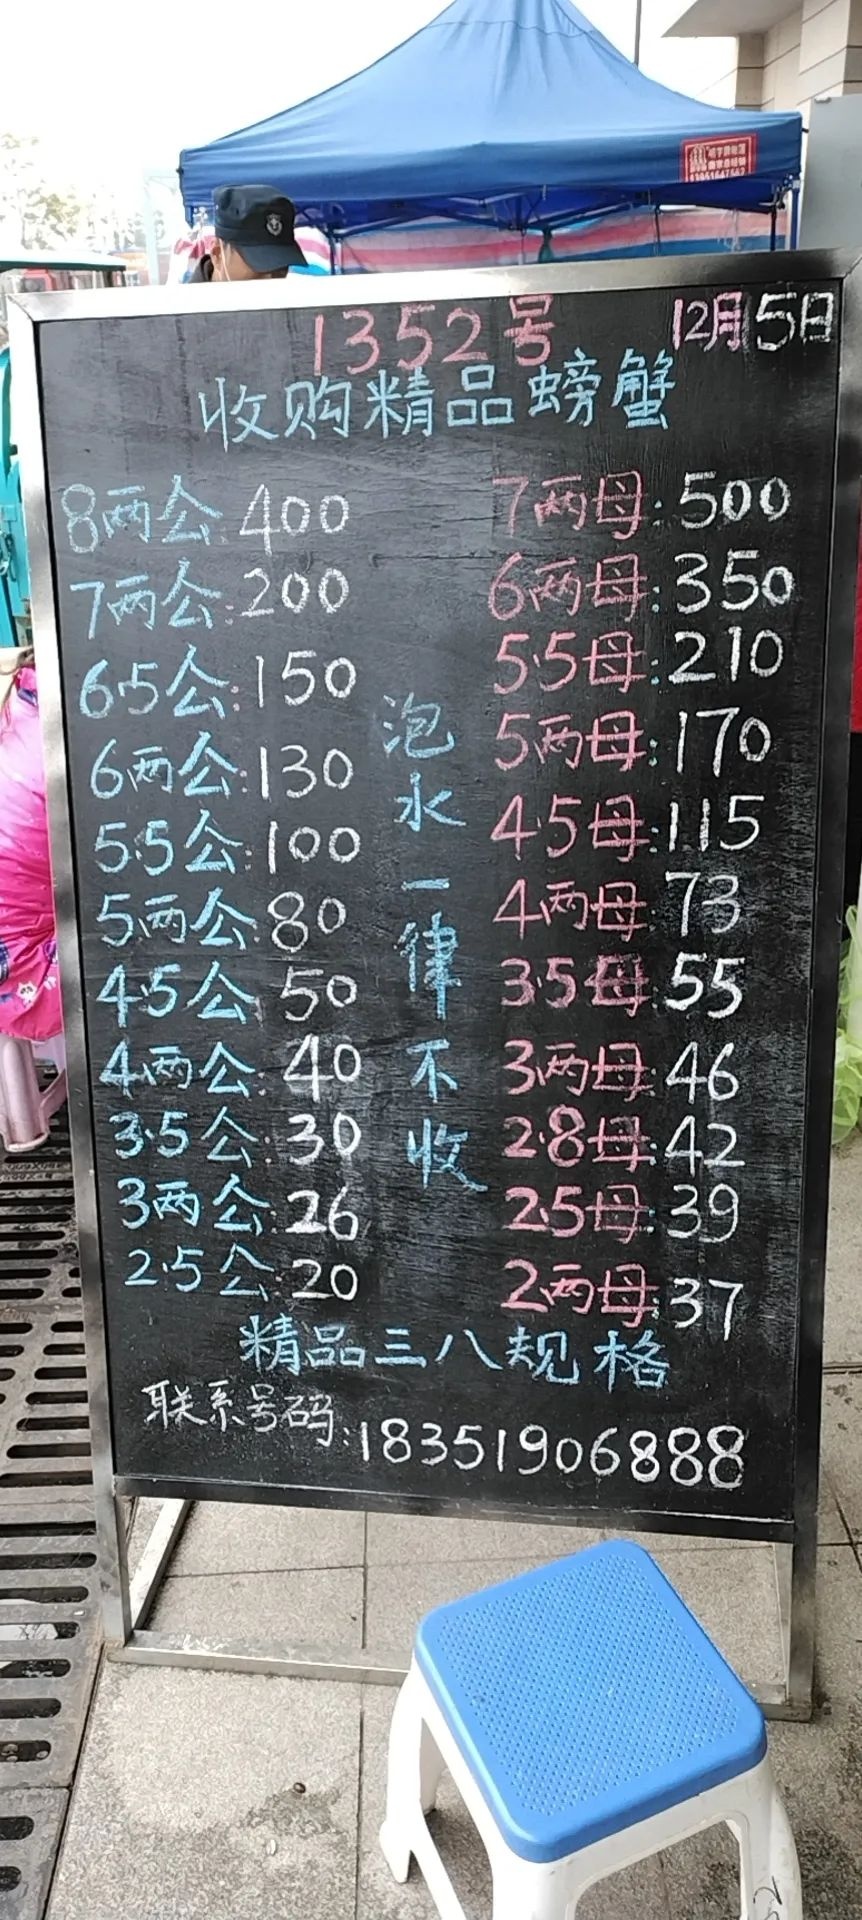 1352号
12月5日
收购精品螃蟹
8两公:400
7两公:200
6.5公:150
6两公:130
5.5公:100
5两公:80
4.5公:50
4两公:40
3.5公:30
3两公:26
2.5公:20
泡水一律不收
7两母:500
6两母:350
5.5母:210
5两母:170
4.5母:115
4两母:73
3.5母:55
3两母:46
2.8母:42
2.5母:39
2两母:37
精品三八规格
联系号码:18351906888